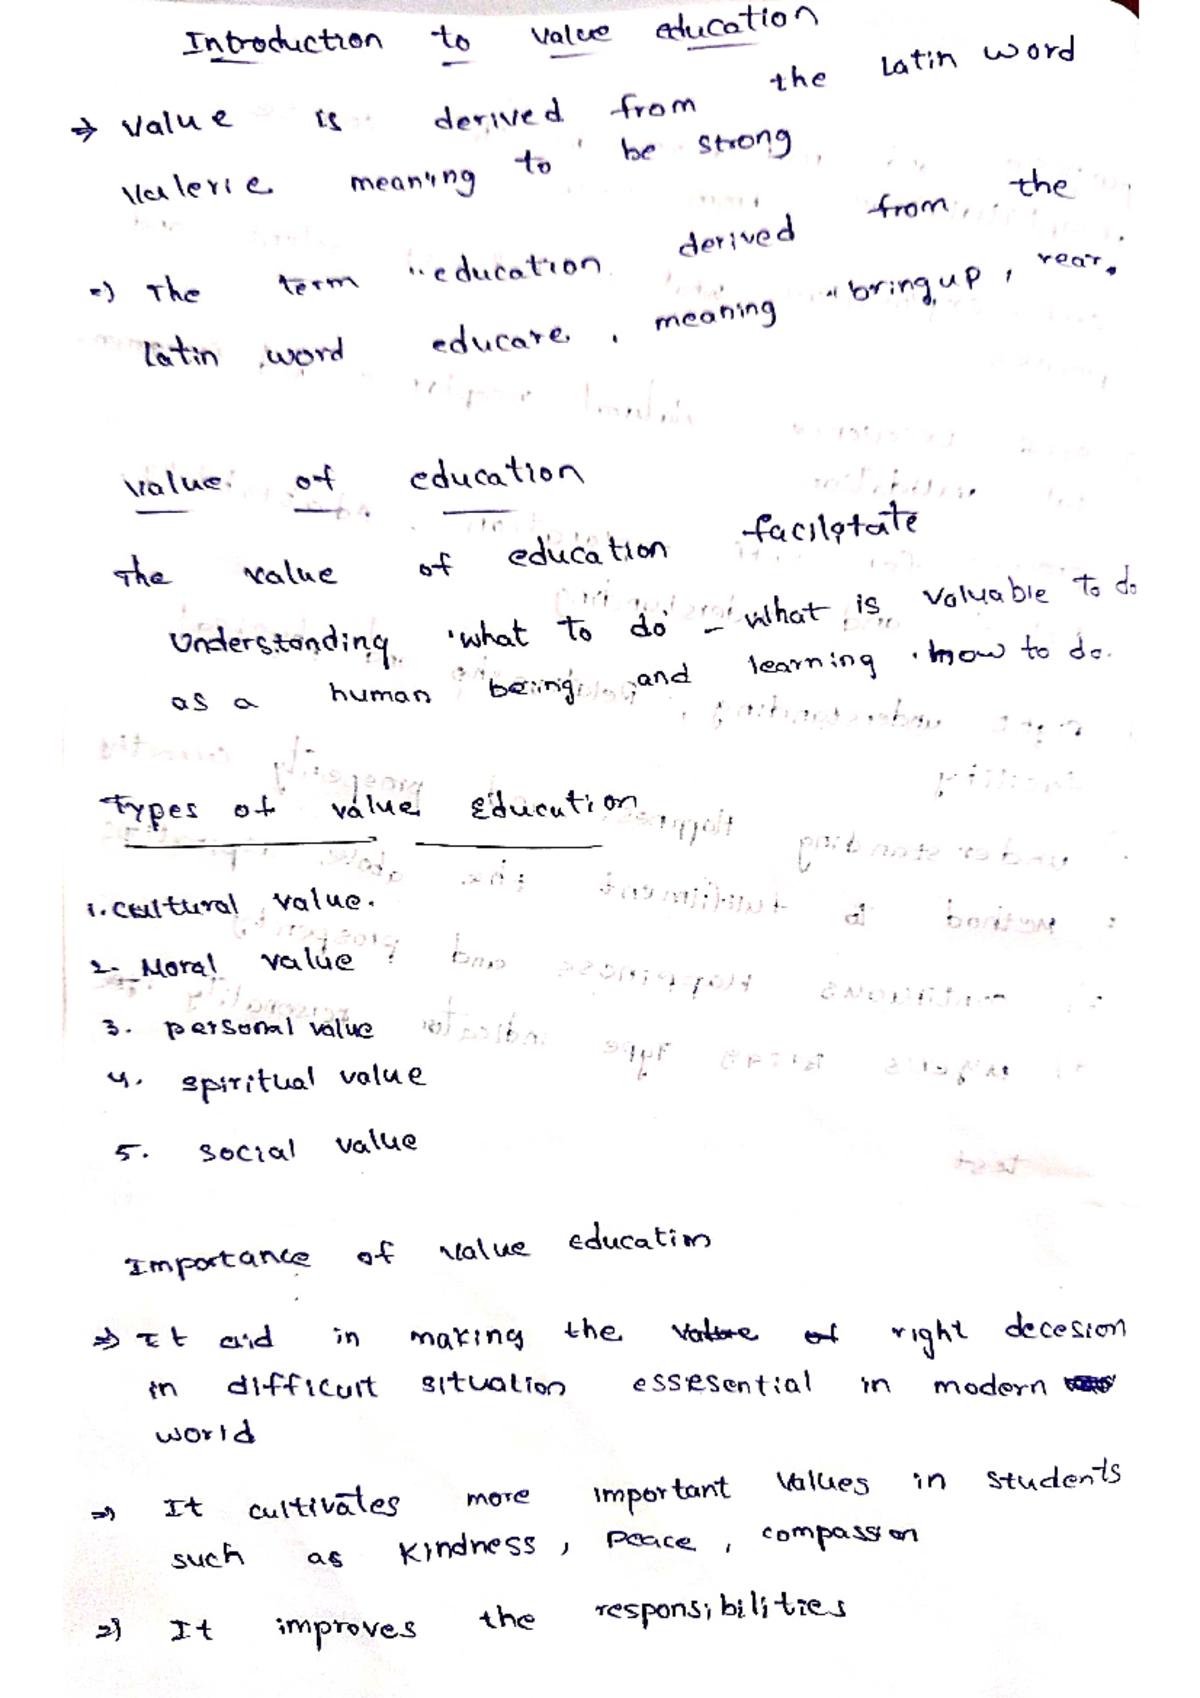 Introduction to value education
⇒ value is derived from the Latin word
valerie meaning to be strong
⇒ The term "education derived from the
latin word educare, meaning "bring up, rear.
value of education
The value of education facilotate
Understanding 'what to do' - what is valuable to do
as a human being and learning how to do.
Types of value Education
1. cultural value.
2. Moral value
3. personal value
4. spiritual value
5. social value
Importance of value education
⇒ It aid in making the right decesion
in difficult situation essesential in modern
world
⇒ It cultivates more important values in students
such as kindness, peace, compassion
⇒ It improves the responsibilities